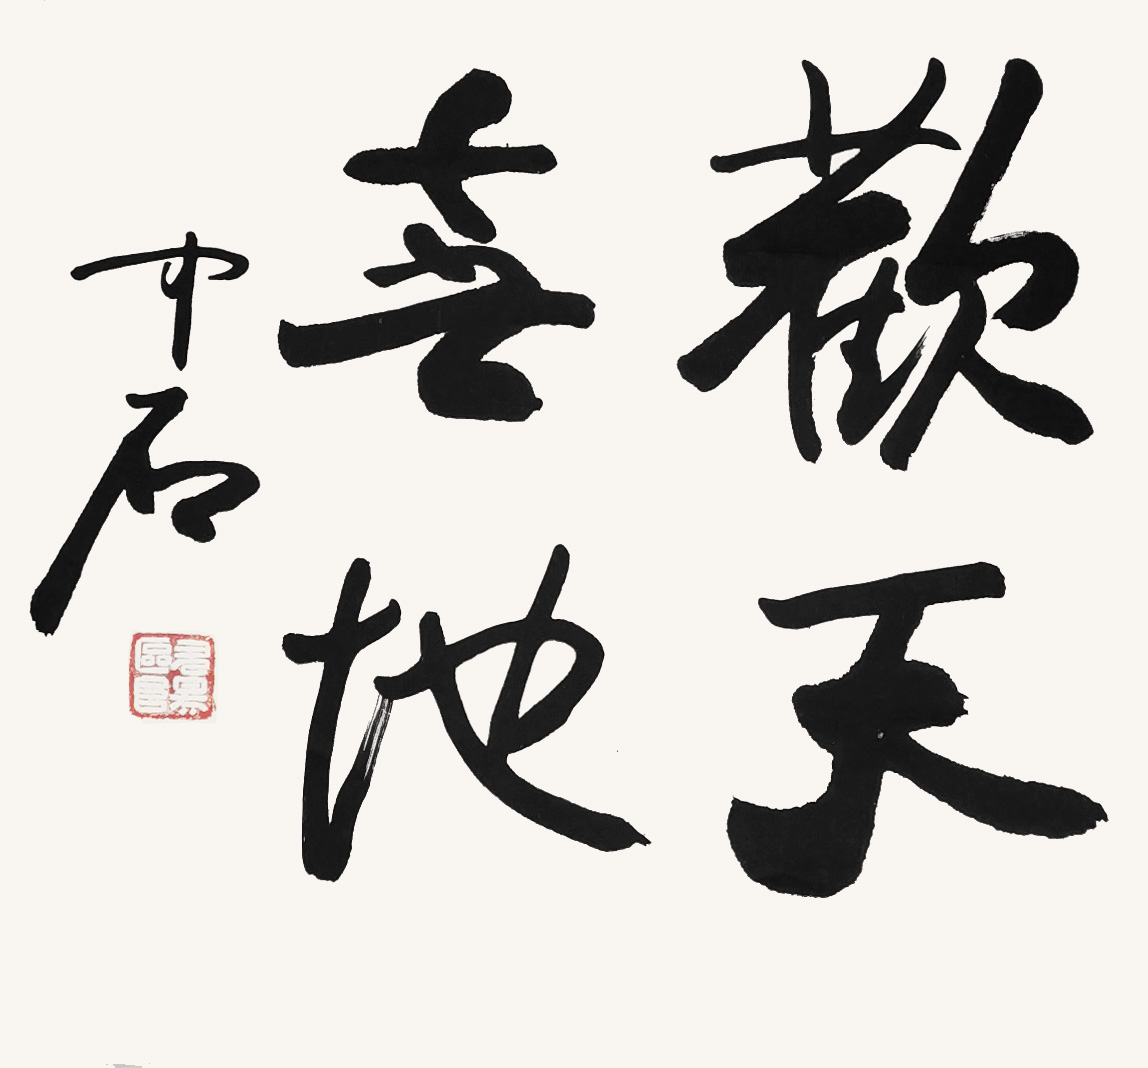 歡天
喜地
中石